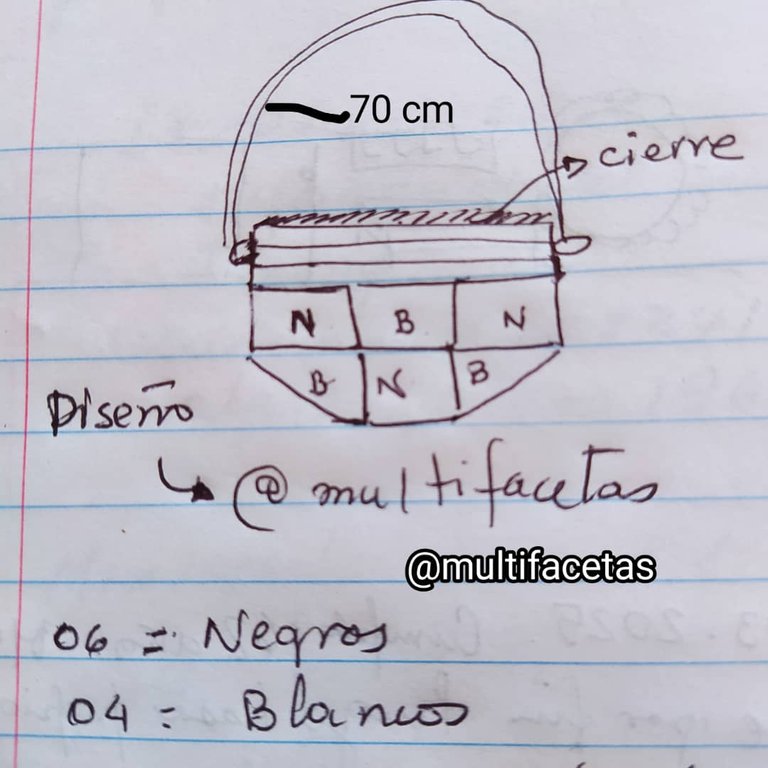 70 cm
cierre
N B N
B N B
Diseño
@multifacetas
@multifacetas
06 = Negros
04 = Blancos